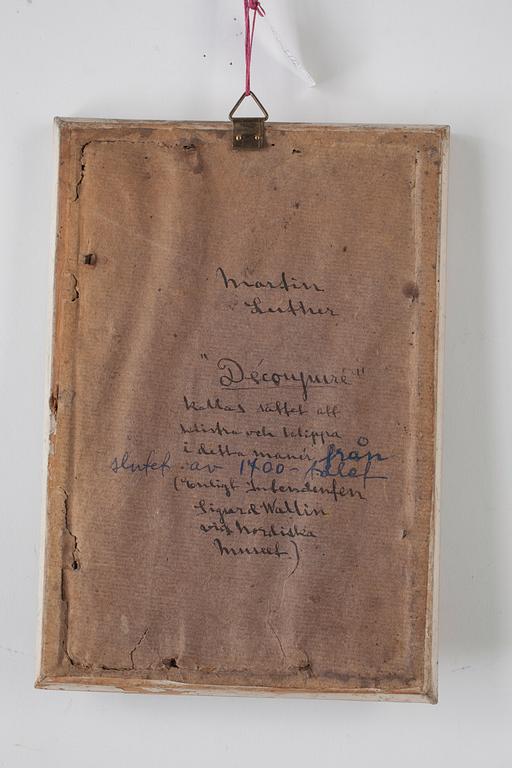 Martin
Luther
"Découpuré"
kallas sättet att
klistra och klippa
i detta manér från
slutet av 1700-talet
(Enligt Intendenten
Sigurd Wallin
vid Nordiska
Museet)